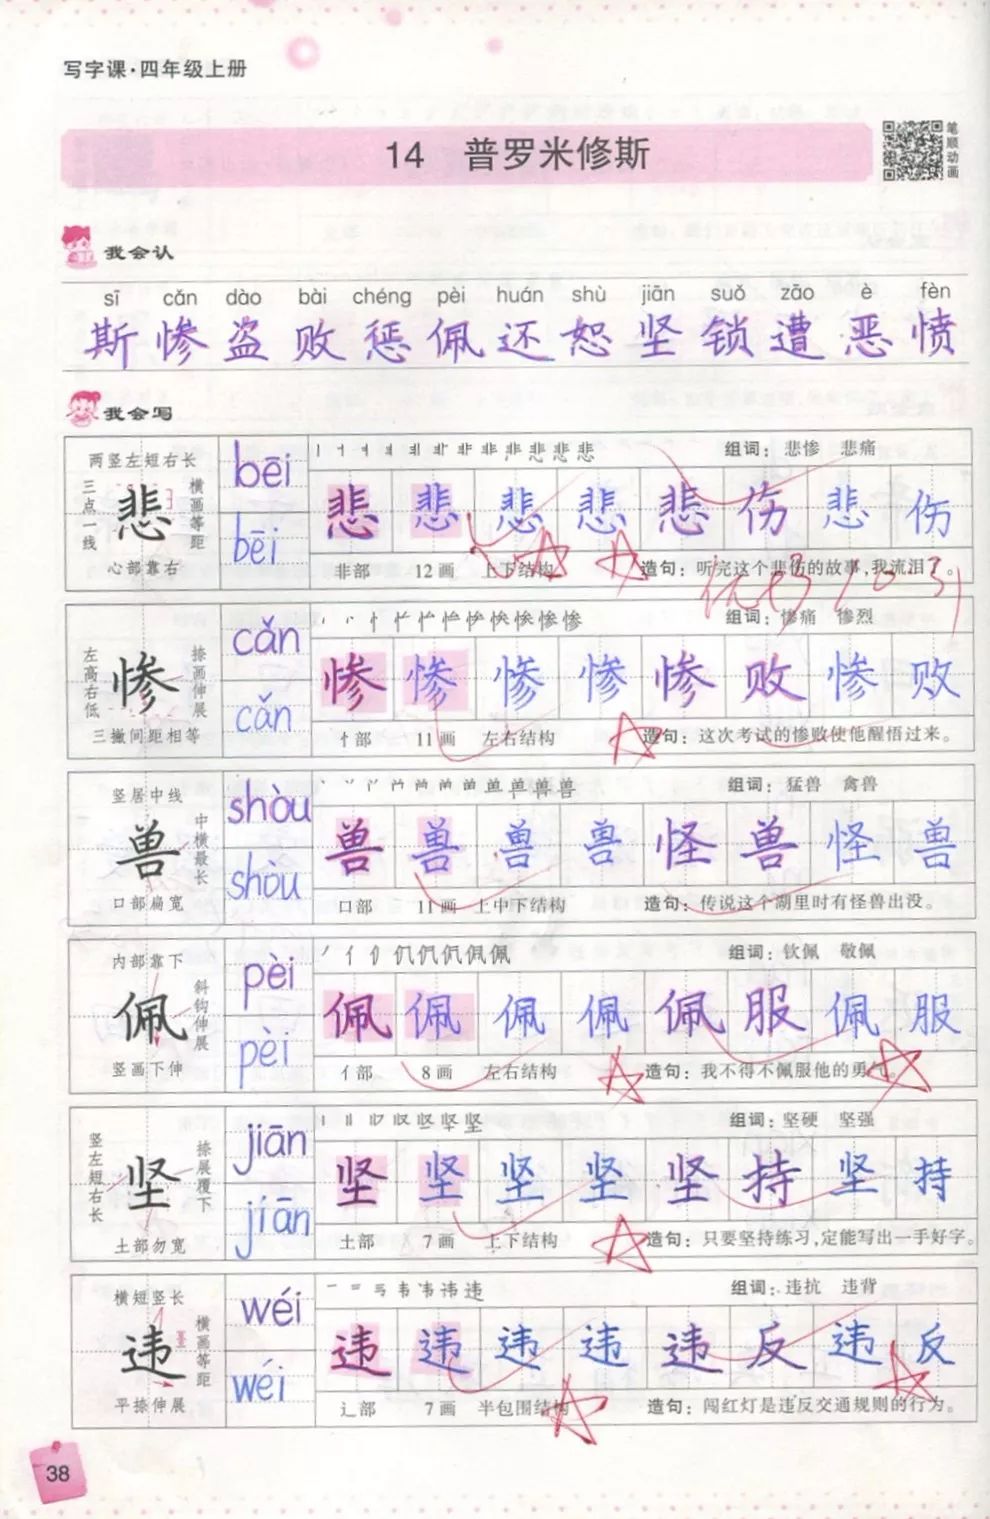 写字课·四年级上册
14 普罗米修斯
笔顺动画
我会认
sī cǎn dào bài chéng pèi huán shù jiān suǒ zāo è fèn
斯 惨 盗 败 惩 佩 还 恕 坚 锁 遭 恶 愤
我会写
两竖左短右长
三点一线
悲
横画等距
心部靠右
bēi
bēi
组词：悲惨 悲痛
悲 悲 悲 悲 悲 伤 悲 伤
非部 12画 上下结构 造句：听完这个悲伤的故事，我流泪了。
优+3 10.31
左高右低
惨
捺画伸展
三撇间距相等
cǎn
cǎn
组词：惨痛 惨烈
惨 惨 惨 惨 惨 败 惨 败
忄部 11画 左右结构 造句：这次考试的惨败使他醒悟过来。
竖居中线
兽
中横最长
口部扁宽
shòu
shòu
组词：猛兽 禽兽
兽 兽 兽 兽 怪 兽 怪 兽
口部 11画 上中下结构 造句：传说这个湖里时有怪兽出没。
内部靠下
佩
斜钩伸展
竖画下伸
pèi
pèi
组词：钦佩 敬佩
佩 佩 佩 佩 佩 服 佩 服
亻部 8画 左右结构 造句：我不得不佩服他的勇气。
竖左短右长
坚
捺展覆下
土部勿宽
jiān
jiān
组词：坚硬 坚强
坚 坚 坚 坚 坚 持 坚 持
土部 7画 上下结构 造句：只要坚持练习，定能写出一手好字。
横短竖长
违
横画等距
平捺伸展
wéi
wéi
组词：违抗 违背
违 违 违 违 违 反 违 反
辶部 7画 半包围结构 造句：闯红灯是违反交通规则的行为。
38